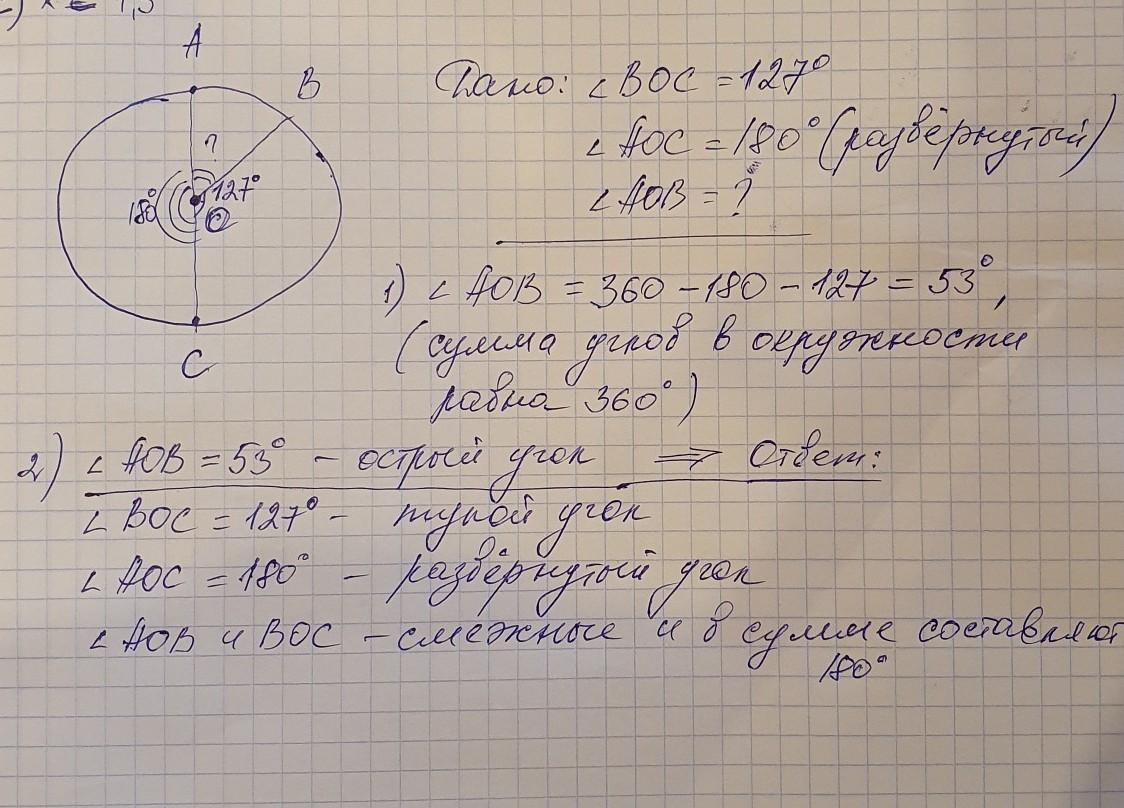 2) x = 1,5
A
B
?
180°
127°
O
C
Дано: ∠BOC = 127°
∠AOC = 180° (развёрнутый)
∠AOB = ?
1) ∠AOB = 360 - 180 - 127 = 53°,
(сумма углов в окружности
равна 360°)
2) ∠AOB = 53° - острый угол ⇒ Ответ:
∠BOC = 127° - тупой угол
∠AOC = 180° - развёрнутый угол
∠AOB и BOC - смежные и в сумме составляют
180°